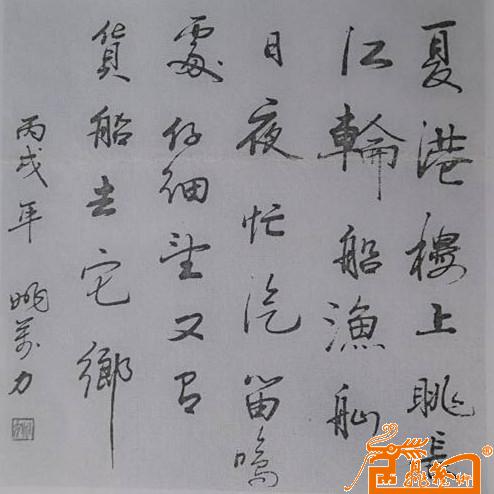 夏港樓上眺長
江輪船漁舢
日夜忙汽笛鳴
處仔細望又有
貨船去它鄉
丙戌年 萬力